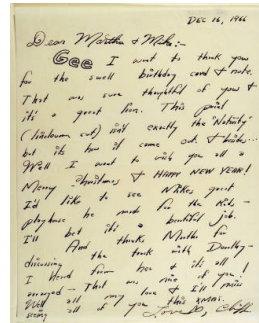 DEC 16, 1966
Dear Martha & Mike:-
Gee I want to thank you
for the swell birthday card & note.
That was sure thoughtful of you &
it's a great line. This print
(linoleum cut) isn't exactly the "Nativity"
but its how it came out & besides...
Well I want to wish you all a
Merry Christmas & HAPPY NEW YEAR!
I'd like to see Mikes great
playhouse he made for the kids -
I'll bet its a beautiful job.
And thanks Martha for
discussing the trunk with Dorothy -
I heard from her & its all
arranged - That was nice of you!
Well all my love & I'll miss
seeing all of you this XMAS.
Love